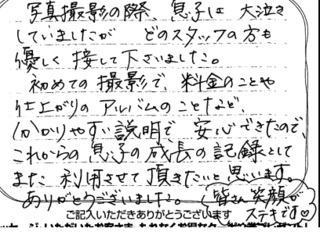 写真撮影の際、息子は大泣き
していましたが どのスタッフの方も
優しく接して下さいました。
初めての撮影で、料金のことや
仕上がりのアルバムのことなど、
わかりやすい説明で 安心できたので、
これからの息子の成長の記録として
また利用させて頂きたいと思います。
ありがとうございました。
皆さん笑顔が
ステキです♡
ご記入いただきありがとうございます